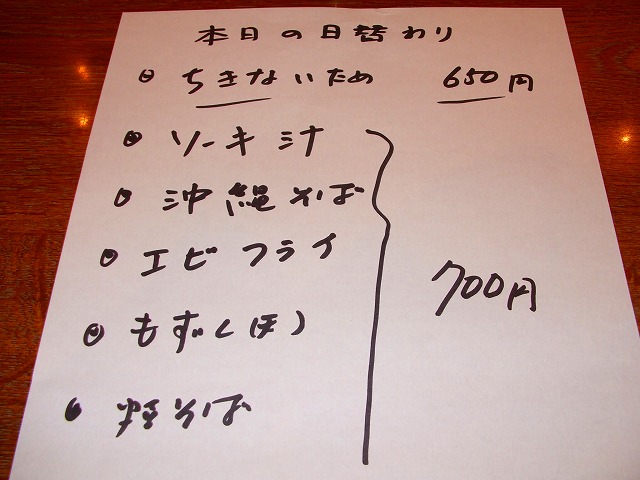 本日の日替わり
ちきないため 650円
ソーキ汁
沖縄そば
エビフライ
もずく(天) 700円
そば